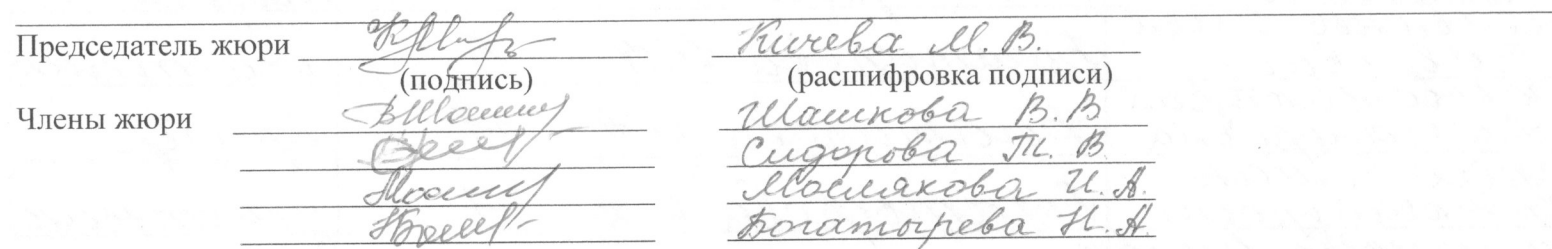 Председатель жюри Кичева М. В.
(подпись) (расшифровка подписи)
Члены жюри Шашкова В. В
Сидорова Т. В.
Маслякова И. А.
Богатырева Н. А.